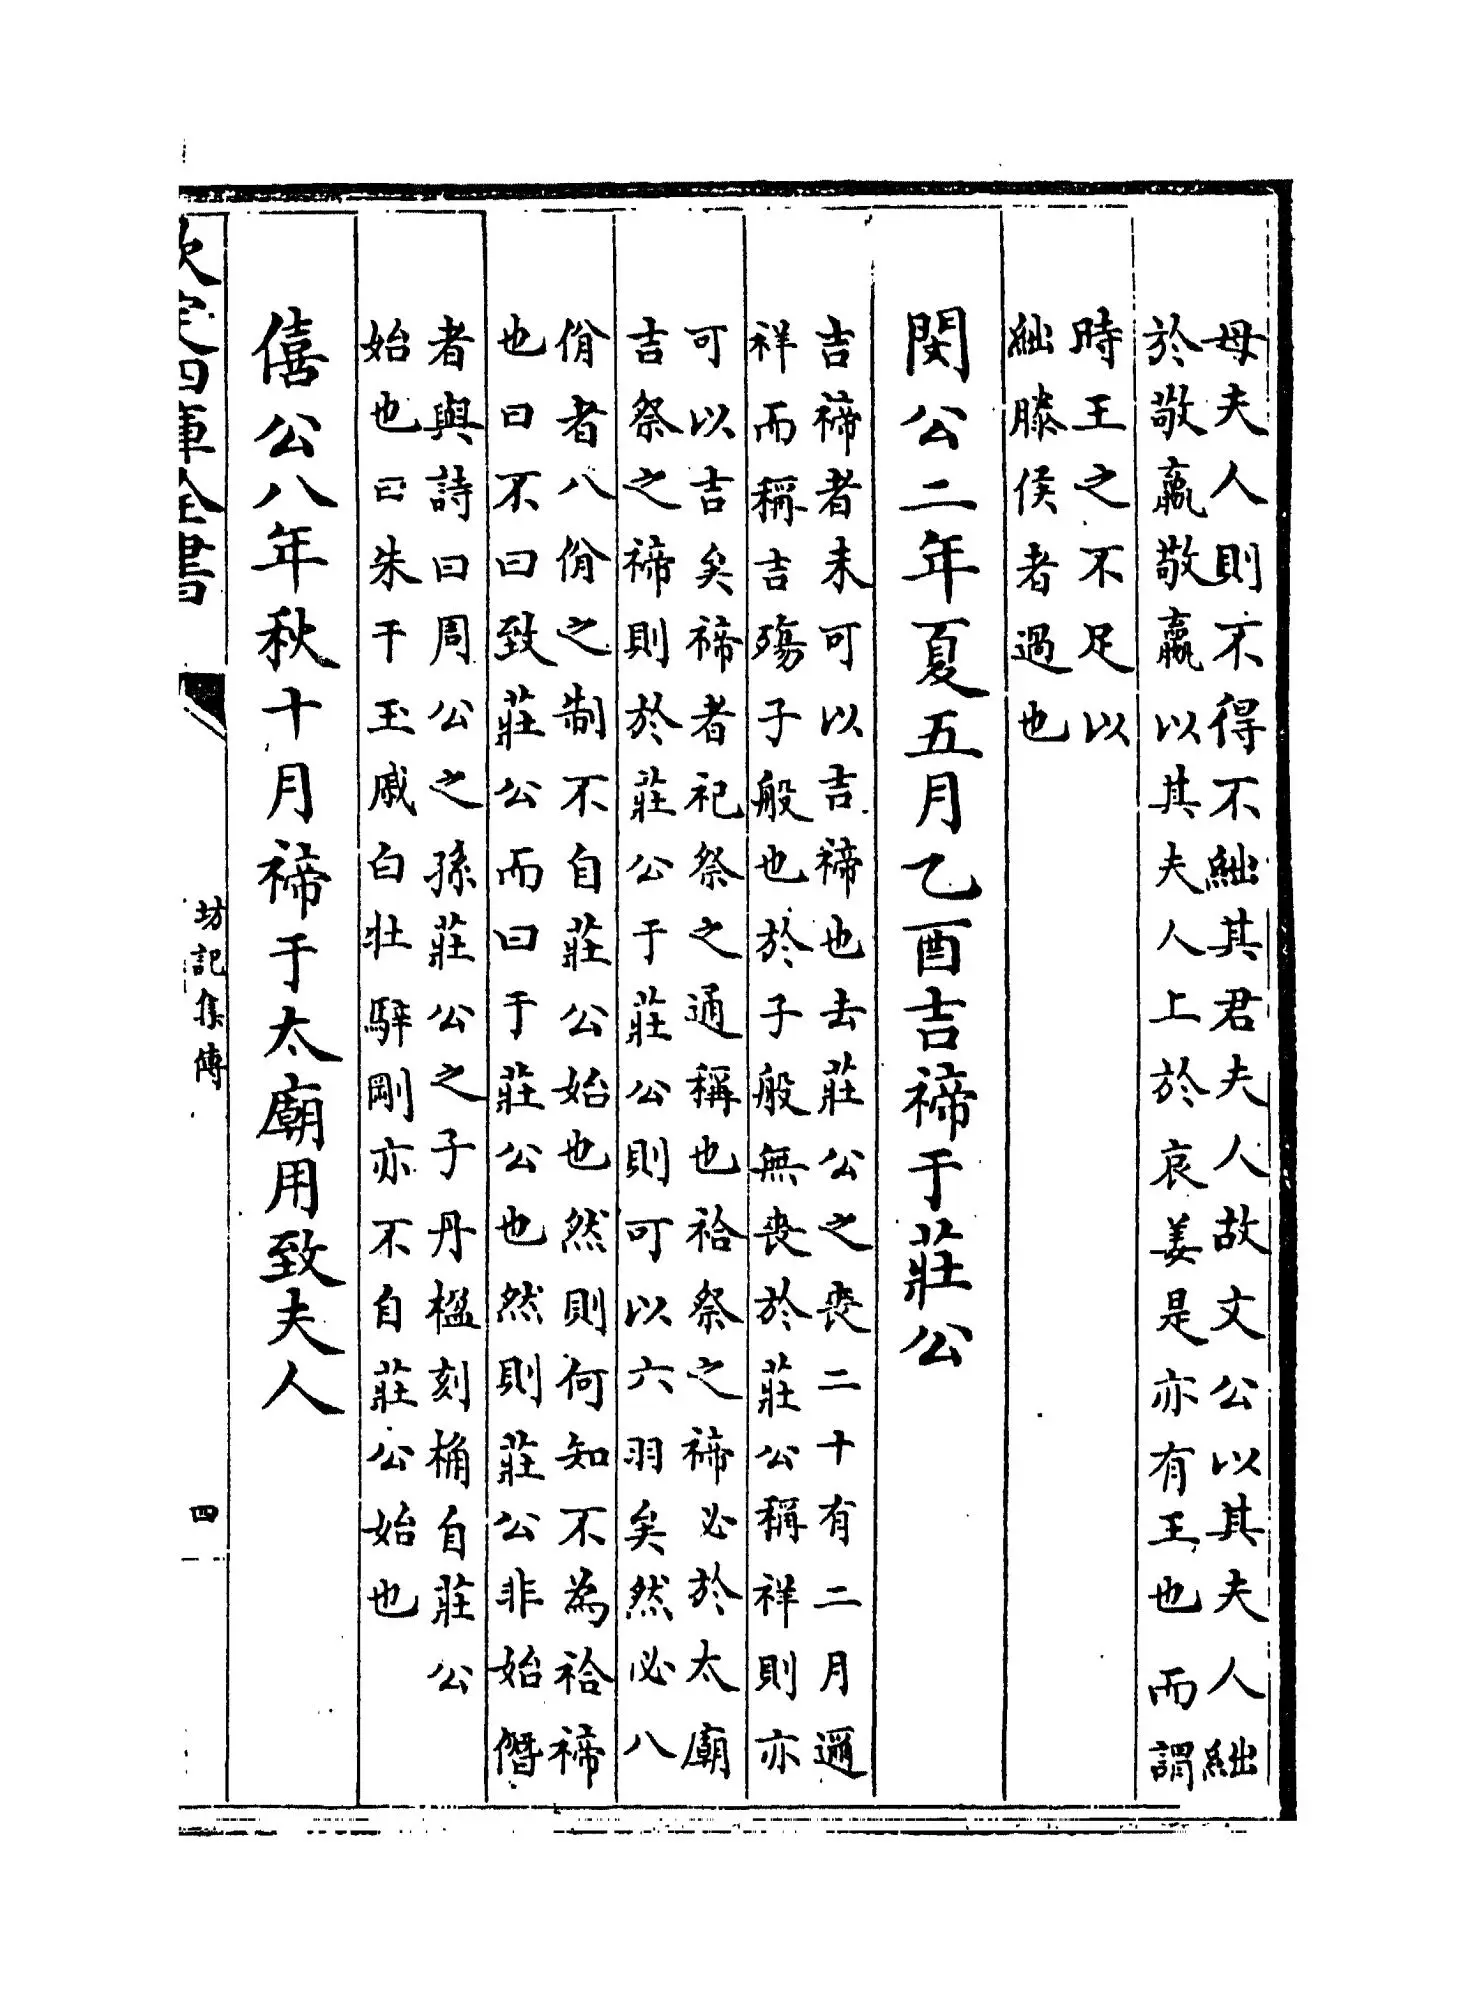 母夫人則不得不絀其君夫人故文公以其夫人絀
於敬嬴敬嬴以其夫人上於哀姜是亦有王也而謂
時王之不足以
絀滕侯者過也
閔公二年夏五月乙酉吉禘于莊公
吉禘者未可以吉禘也去莊公之喪二十有二月邇
祥而稱吉殤子般也於子般無喪於莊公稱祥則亦
可以吉矣禘者祀祭之通稱也祫祭之禘必於太廟
吉祭之禘則於莊公于莊公則可以六羽矣然必八
佾者八佾之制不自莊公始也然則何知不為祫禘
也曰不曰致莊公而曰于莊公也然則莊公非始僭
者與詩曰周公之孫莊公之子丹楹刻桷自莊公
始也曰朱干玉戚白牡騂剛亦不自莊公始也
僖公八年秋十月禘于太廟用致夫人
欽定四庫全書
坊記集傳
四